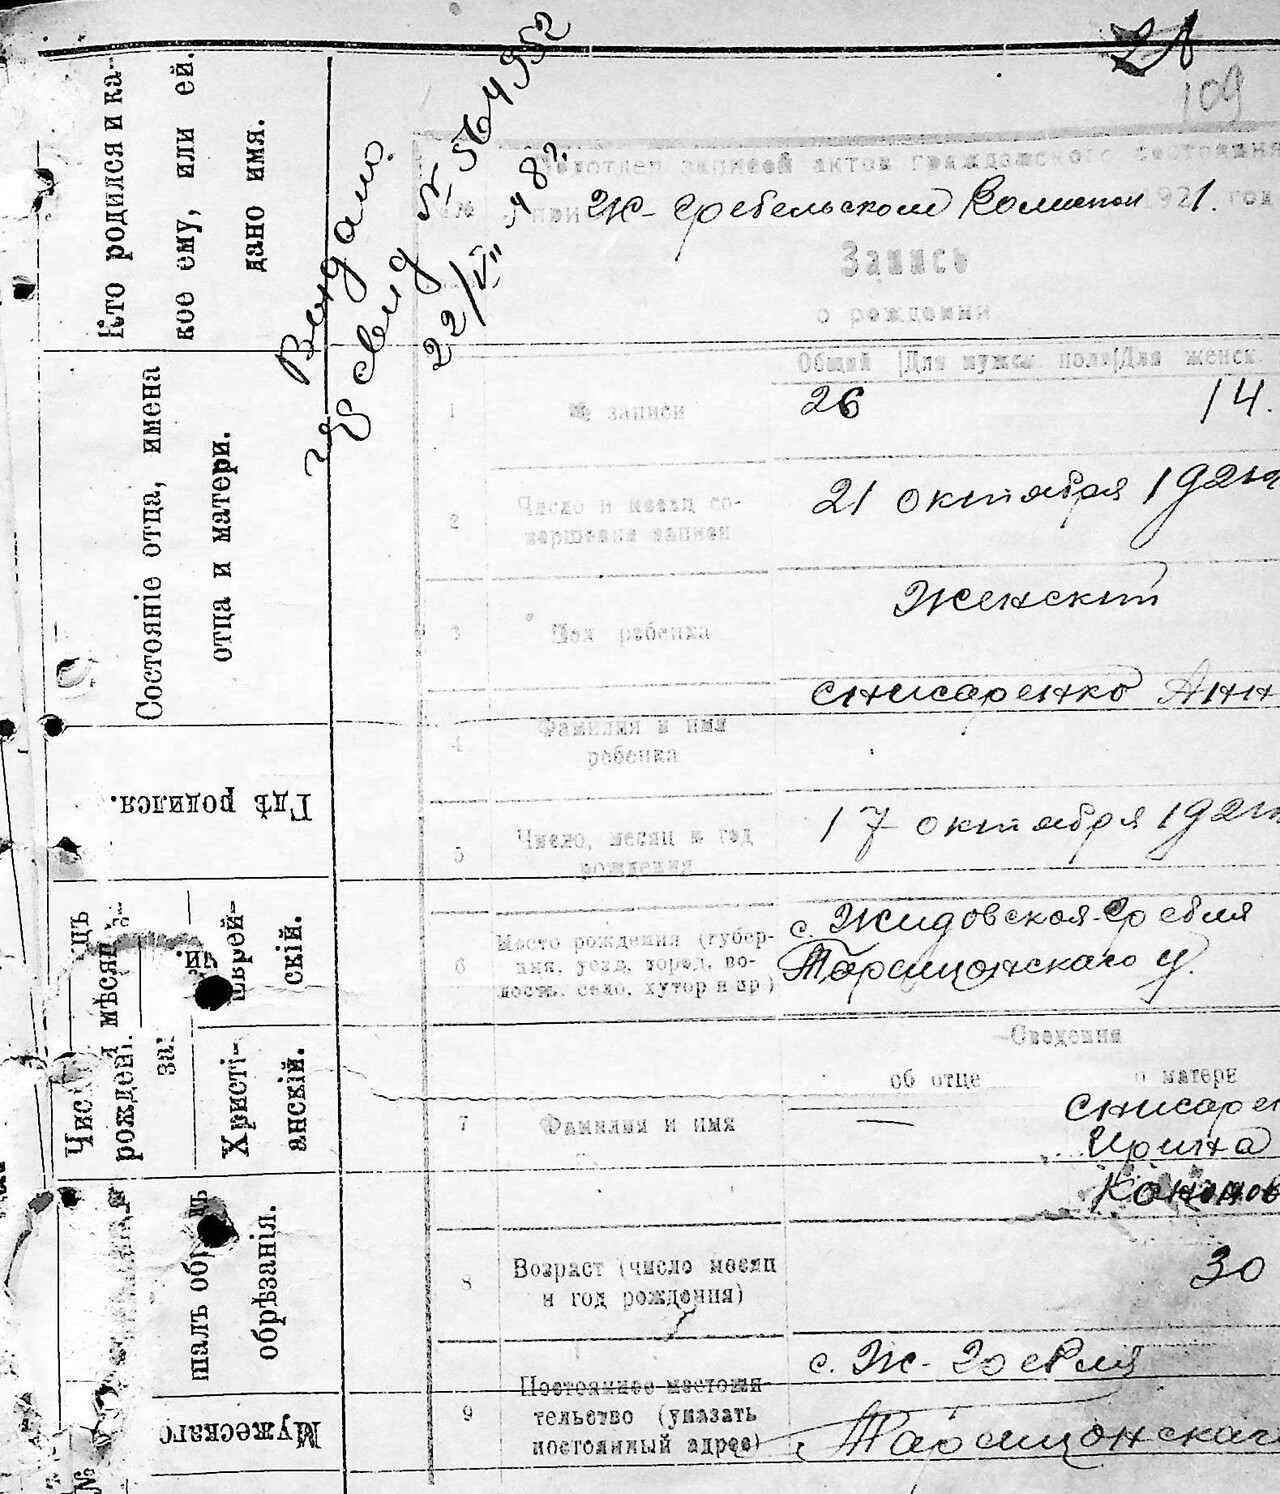 109
Подотдел записей актов гражданского состояния
при Ж-Гребельском 1921. год
Запись
о рождении
Кто родился и ка-
кое ему, или ей.
дано имя.
Состояніе отца, имена
отца и матери.
Гдѣ родился.
рожден.
еврей-
скій.
Христі-
анскій.
обрѣзанія.
Мужескаго
№
Выдано
свид № 564952
22/VII 48г.
Общий Для мужск. пола Для женск.
1 № записи 26 14.
2 Число и месяц со-
вершения записи 21 октября 1921г
3 Пол ребенка Женский
4 Фамилия и имя
ребенка Снисаренко Анн
5 Число, месяц и год
рождения 17 октября 1921г
6 Место рождения (губер-
ния, уезд, город, во-
лость, село, хутор и пр.) с. Жидовская-Гребля
Таращанскаго у.
Сведения
об отце о матери
7 Фамилия и имя — Снисарен
Ирина
Кононов
8 Возраст (число месяц
и год рождения) 30
9 Постоянное местожи-
тельство (указать
постоянный адрес) с. Ж-Гребля
Таращанскаго